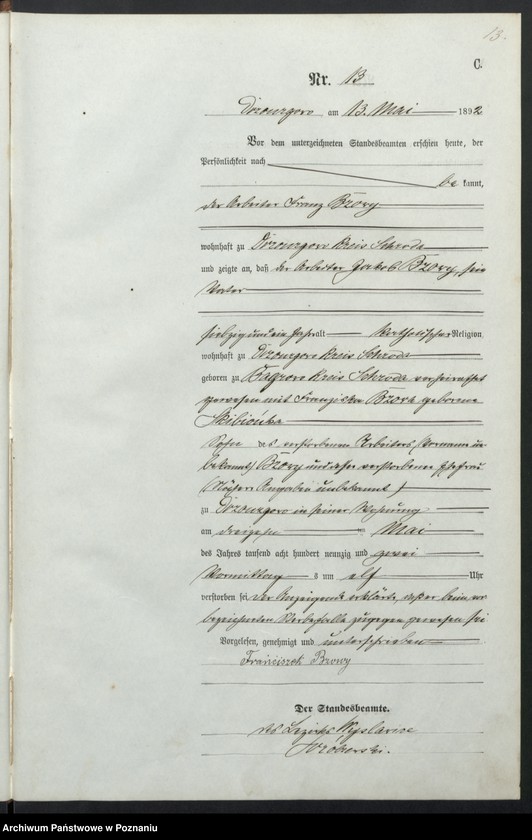 13.
C.
Nr. 13
am 13. Mai 1892
Vor dem unterzeichneten Standesbeamten erschien heute, der
Persönlichkeit nach
be kannt,
der Arbeiter Franz Bzovy
wohnhaft zu Kreis Schroda
und zeigte an, daß der Arbeiter Jakob Bzovy, sein
Vater
siebzig und ein Jahr alt katholischer Religion
wohnhaft zu Kreis Schroda
geboren zu Bagrowo Kreis Schroda verheirathet
gewesen mit Franziska geborene
Sohn des verstorbenen Arbeiters (Vorname un
bekannt) Bzovy und dessen verstorbener Ehefrau
(Nähere Angaben unbekannt)
zu in seiner Wohnung
am dreizehn ten Mai
des Jahres tausend acht hundert neunzig und zwei
Vormittag s um elf Uhr
verstorben sei der Anzeigende erklärte, daß er beim vor
bezeichneten Sterbefalle zugegen gewesen sei
Vorgelesen, genehmigt und unterschrieben
Franciszek Bzowy
Der Standesbeamte.
des Bezirks
Archiwum Państwowe w Poznaniu